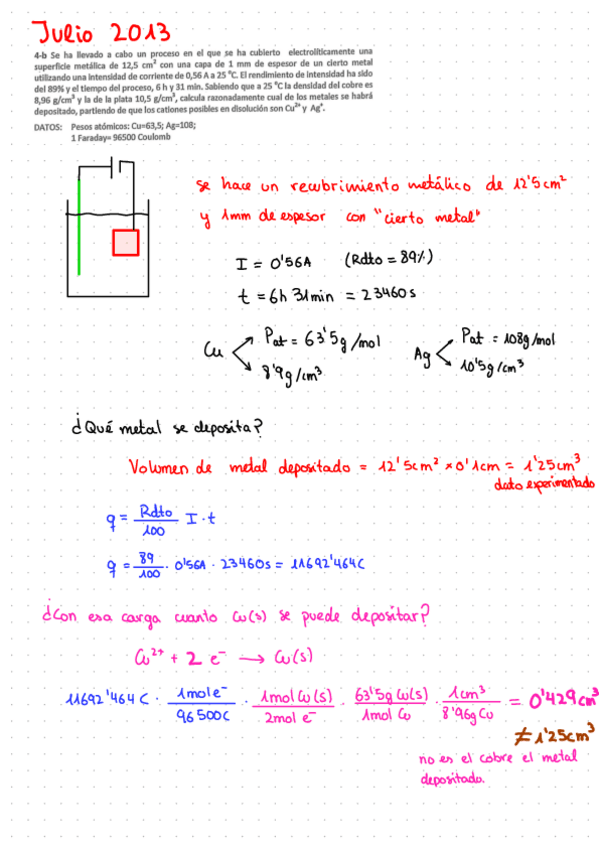 Julio 2013
4-b Se ha llevado a cabo un proceso en el que se ha cubierto electrolíticamente una
superficie metálica de 12,5 cm² con una capa de 1 mm de espesor de un cierto metal
utilizando una intensidad de corriente de 0,56 A a 25 ºC. El rendimiento de intensidad ha sido
del 89% y el tiempo del proceso, 6 h y 31 min. Sabiendo que a 25 ºC la densidad del cobre es
8,96 g/cm³ y la de la plata 10,5 g/cm³, calcula razonadamente cual de los metales se habrá
depositado, partiendo de que los cationes posibles en disolución son Cu²⁺ y Ag⁺.
DATOS: Pesos atómicos: Cu=63,5; Ag=108;
1 Faraday= 96500 Coulomb
se hace un recubrimiento metálico de 12'5cm²
y 1mm de espesor con "cierto metal"
I = 0'56A (Rdto = 89%)
t = 6h 31min = 23460s
Cu Pat = 63'5g/mol 8'9g/cm³ Ag Pat = 108g/mol 10'5g/cm³
¿Qué metal se deposita?
Volumen de metal depositado = 12'5cm² × 0'1cm = 1'25cm³
dato experimentado
q = Rdto/100 I·t
q = 89/100 · 0'56A · 23460s = 11692'464C
¿Con esa carga cuanto Cu(s) se puede depositar?
Cu²⁺ + 2 e⁻ → Cu(s)
11692'464 C · 1mol e⁻/96500C · 1mol Cu(s)/2mol e⁻ · 63'5g Cu(s)/1mol Cu · 1cm³/8'96g Cu = 0'429cm³
≠ 1'25cm³
no es el cobre el metal
depositado.